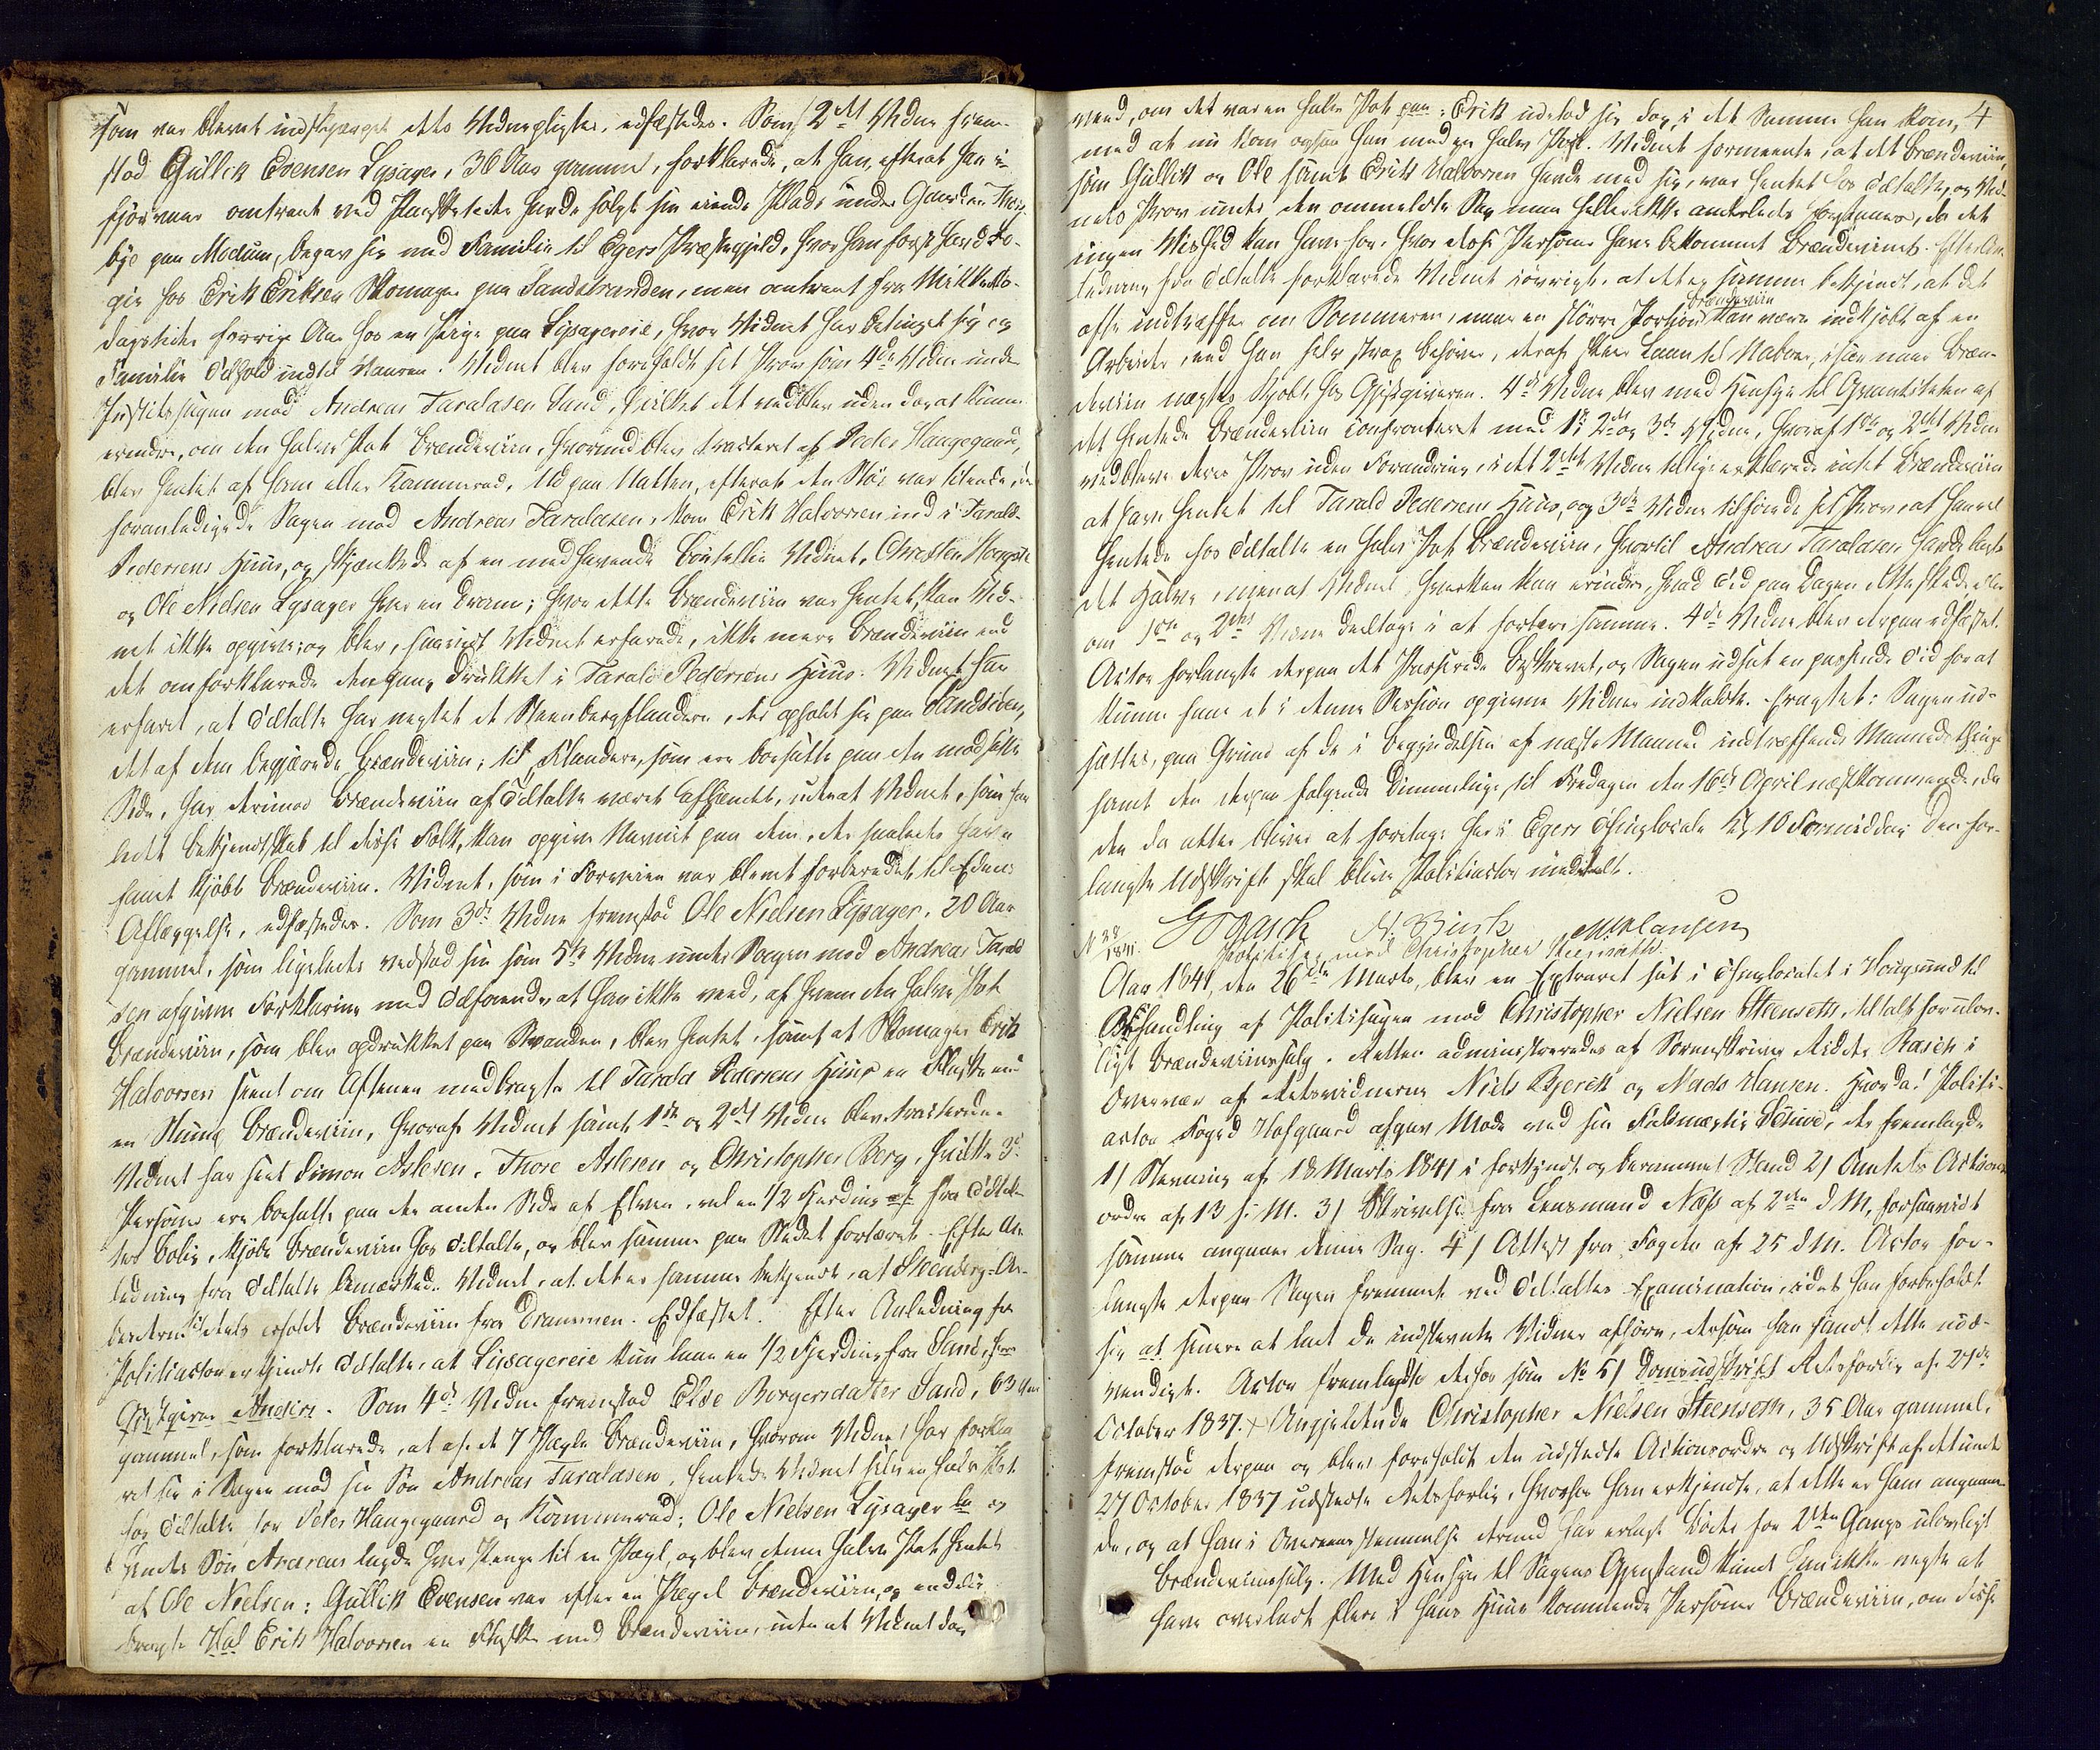 som var blevet indskjærpet dets Vidnepligter, edfæstedes. Som 2det Vidne frem-
stod Gullik Evensen Lysager, 36 Aar gammel, forklarede, at han, efterat han i-
fjor vaar omtrent ved Paasketider havde solgt sin eiende Plads under Gaarden Thor-
bye paa Modum, begav sig med Familie til Egers Præstegjeld, hvor han først havde Lo-
gie hos Erik Eriksen Skomager paa Sandstranden, men omtrent fra Mikkels-
dagstider forrige Aar hos en Pige paa Lysagereie, hvor Vidnet har betinget sig og
Familie Tilhold indtil Vaaren. Vidnet blev foreholdt sit Prov som 4de Vidne under
Justitssagen mod Andreas Taraldsen Sand, hvilket det vedblev uden dog at kunne
erindre, om den halve Pot Brændeviin, hvormed blev tracteret af Peder Haugegaard,
blev hentet af ham eller Kammerad. Ud paa Natten, efterat den Støi var tilende, der
foranledigede Sagen mod Andreas Taraldsen, kom Erik Halvorsen ind i Tarald
Pedersens Huus, og skjænkede af en medhavende Bouteille Vidnet, Christen Horgen
og Ole Nielsen Lysager hver en Dram; hvor dette Brændeviin var hentet, kan Vid-
net ikke opgive; og blev, saavidt Vidnet erfarede, ikke mere Brændeviin end
det omforklarede dengang drukket i Tarald Pedersens Huus. Vidnet har
erfaret, at Tiltalte har negtet et Steenbergflandere, der opholdt sig paa Sandsiden,
det af dem begjærede Brændeviin; til Flandere, som ere bosatte paa den modsatte
Side, har derimod Brændeviin af Tiltalte været afhændet, uden at Vidnet, som har
lidet bekjendtskab til disse Folk, kan opgive Navnet paa dem, der saaledes have
faaet kjøbt Brændeviin. Vidnet, som i Forveien var blevet forberedet til Edens
Aflæggelse, edfæstedes. Som 3de Vidne fremstod Ole Nielsen Lysager, 20 Aar
gammel, som ligeledes vedstod sin som 5te Vidne under Sagen mod Andreas Tarald-
sen afgivne Forklaring med Tilføiende, at han ikke veed, af hvem den halve Pot
Brændeviin, som blev opdrukket paa Stranden, blev hentet, samt at Skomager Erik
Halvorsen seent om Aftenen medbragte til Tarald Pedersens Huus en Flaske med
en Slump Brændeviin, hvoraf Vidnet samt 1ste og 2det Vidne blev tracterede.
Vidnet har seet Simon Aslesen, Thore Aslesen og Christopher Berg, hvilke 3de
Personer ere bosatte paa den anden Side af Elven, vel en 1/2 Fjerding fra Tiltal-
tes Bolig, kjøbe Brændeviin hos Tiltalte, og blev samme paa Stedet fortæret. Efter An-
ledning fra Tiltalte bemærkede Vidnet, at det er samme bekjendt, at Steenberg-Ar-
beiderne tildels erholdt Brændeviin fra Drammen. Edfæstet. Efter Anledning fra
Politiactor erkjendte Tiltalte, at Lysagereie kun laae en 1/2 Fjerding fra Sand, for
Gjestgiver Anders. Som 4de Vidne fremstod Else Borgersdatter Sand, 63 Aar
gammel, som forklarede, at af de 7 Pægle Brændeviin, hvorom Vidnet har forkla-
ret sig i Sagen mod sin Søn Andreas Taraldsen, hentede Vidnet selv en halv Pot
hos Tiltalte for Peter Haugegaard og Kammerad; Ole Nielsen Lysager og
Vidnets Søn Andreas lagde hver Penge til en Pægl, og blev denne halve Pot hentet
af Ole Nielsen; Gullik Evensen var efter en Pægel Brændeviin, og endelig
bragte Erik Halvorsen en Flaske med Brændeviin, uden at Vidnet dog
veed, om det var en halv Pot paa; Erik udlod sig dog, i det Samme han kom, 4
med at nu kom ogsaa han med en halv Pot. Vidnet formeente, at det Brændeviin,
som Gullik og Ole samt Erik Halvorsen havde med sig, var hentet hos Tiltalte, og Vid-
nets Prov under den ommeldte Sag maa heller ikke anderledes forstaaes, da det
ingen Vished kan have for, hvor disse Personer have bekommet Brændevinet. Efter An-
ledning fra Tiltalte forklarede Vidnet iøvrigt, at det er samme bekjendt, at det
ofte indtræffer om Sommeren, naar en større Portion Brændeviin kan være indkjøbt af en
Arbeider, end han selv strax behøver, deraf skeer Laan til Naboer, især naar Bræn-
deviin nægtes kjøbt hos Gjestgiveren. 4de Vidne blev med Hensyn til Qvantiteten af
det hentede Brændeviin confronteret med 1ste 2det og 3de Vidne, hvoraf 1ste og 2det Vidne
vedbleve deres Prov uden Forandring, i det 2det Vidne tillige erklærede intet Brændeviin
at have hentet til Tarald Pedersens Huus, og 3de Vidne tilføiede sit Prov, at han vel
hentede hos Tiltalte en halv Pot Brændeviin, hvortil Andreas Taraldsen havde lagt
det Halve, men at Vidnet hverken kan erindre, hvad Tid paa Dagen dette skede, eller
om 1ste og 2det Vidne deeltoge i at fortære samme. 4de Vidne blev derpaa edfæstet.
Actor forlangte derpaa det Passerede beskrevet, og Sagen udsat en passende Tid for at
kunne faae de i denne Session opgivne Vidner indkaldte. Eragtet: Sagen ud-
sættes, paa Grund af de i Begyndelsen af næste Maaned indtræffende Maanedsthinge
samt den derpaa følgende Dimmeluge, til Fredagen den 16de April næstkommende, da
den da atter bliver at foretage her i Egers Thinglocale Kl. 10 Formiddag. Den for-
langte Udskrift skal blive Politiactor meddeelt.
Rasch N. Bjerk M. Hansen
N 28/1841. Politisag mod Christopher Steenseth.
Aar 1841, den 26de Marts, blev en Extraret sat i Thinglocalet i Hougsund til
Behandling af Politisagen mod Christopher Nielsen Steenseth, tiltalt for ulov-
ligt Brændeviinssalg. Retten administreredes af Sorenskriver Ridder Rasch i
Overvær af Retsvidnerne Niels Bjerk og Mads Hansen. Hvorda! Politi-
actor Foged Hofgaard afgav Møde ved sin Fuldmægtig Schive, der fremlagde
1) Stævning af 18 Marts 1841 i forkyndt og berammet Stand 2) Amtets Actions-
ordre af 13 s. M. 3) Skrivelse fra Lensmand Næss af 2den d. M., forsaavidt
samme angaaer denne Sag. 4) Attest fra Fogden af 25 d. M. Actor for-
langte derpaa Sagen fremmet ved Tiltaltes Examination, idet han forbeholdt
sig at senere at lade de indstevnte Vidner afhøre, dersom han fandt dette nød-
vendigt. Actor fremlagde derhos som No 5) Domsudskrift Retsforlig af 27de
October 1837. Angjeldende Christopher Nielsen Steenseth, 35 Aar gammel,
fremstod derpaa og blev foreholdt den udstedte Actionsordre og Udskrift af det under
27 October 1837 udstedte Retsforlig, hvorhos han erkjendte, at dette er ham angaaen-
de, og at han i Overeensstemmelse dermed har erlagt Bøder for 2den Gangs ulovligt
Brændeviinssalg. Med Hensyn til Sagens Gjenstand kunde han ikke negte at
have overladt flere i hans Huus kommende Personer Brændeviin, om disse